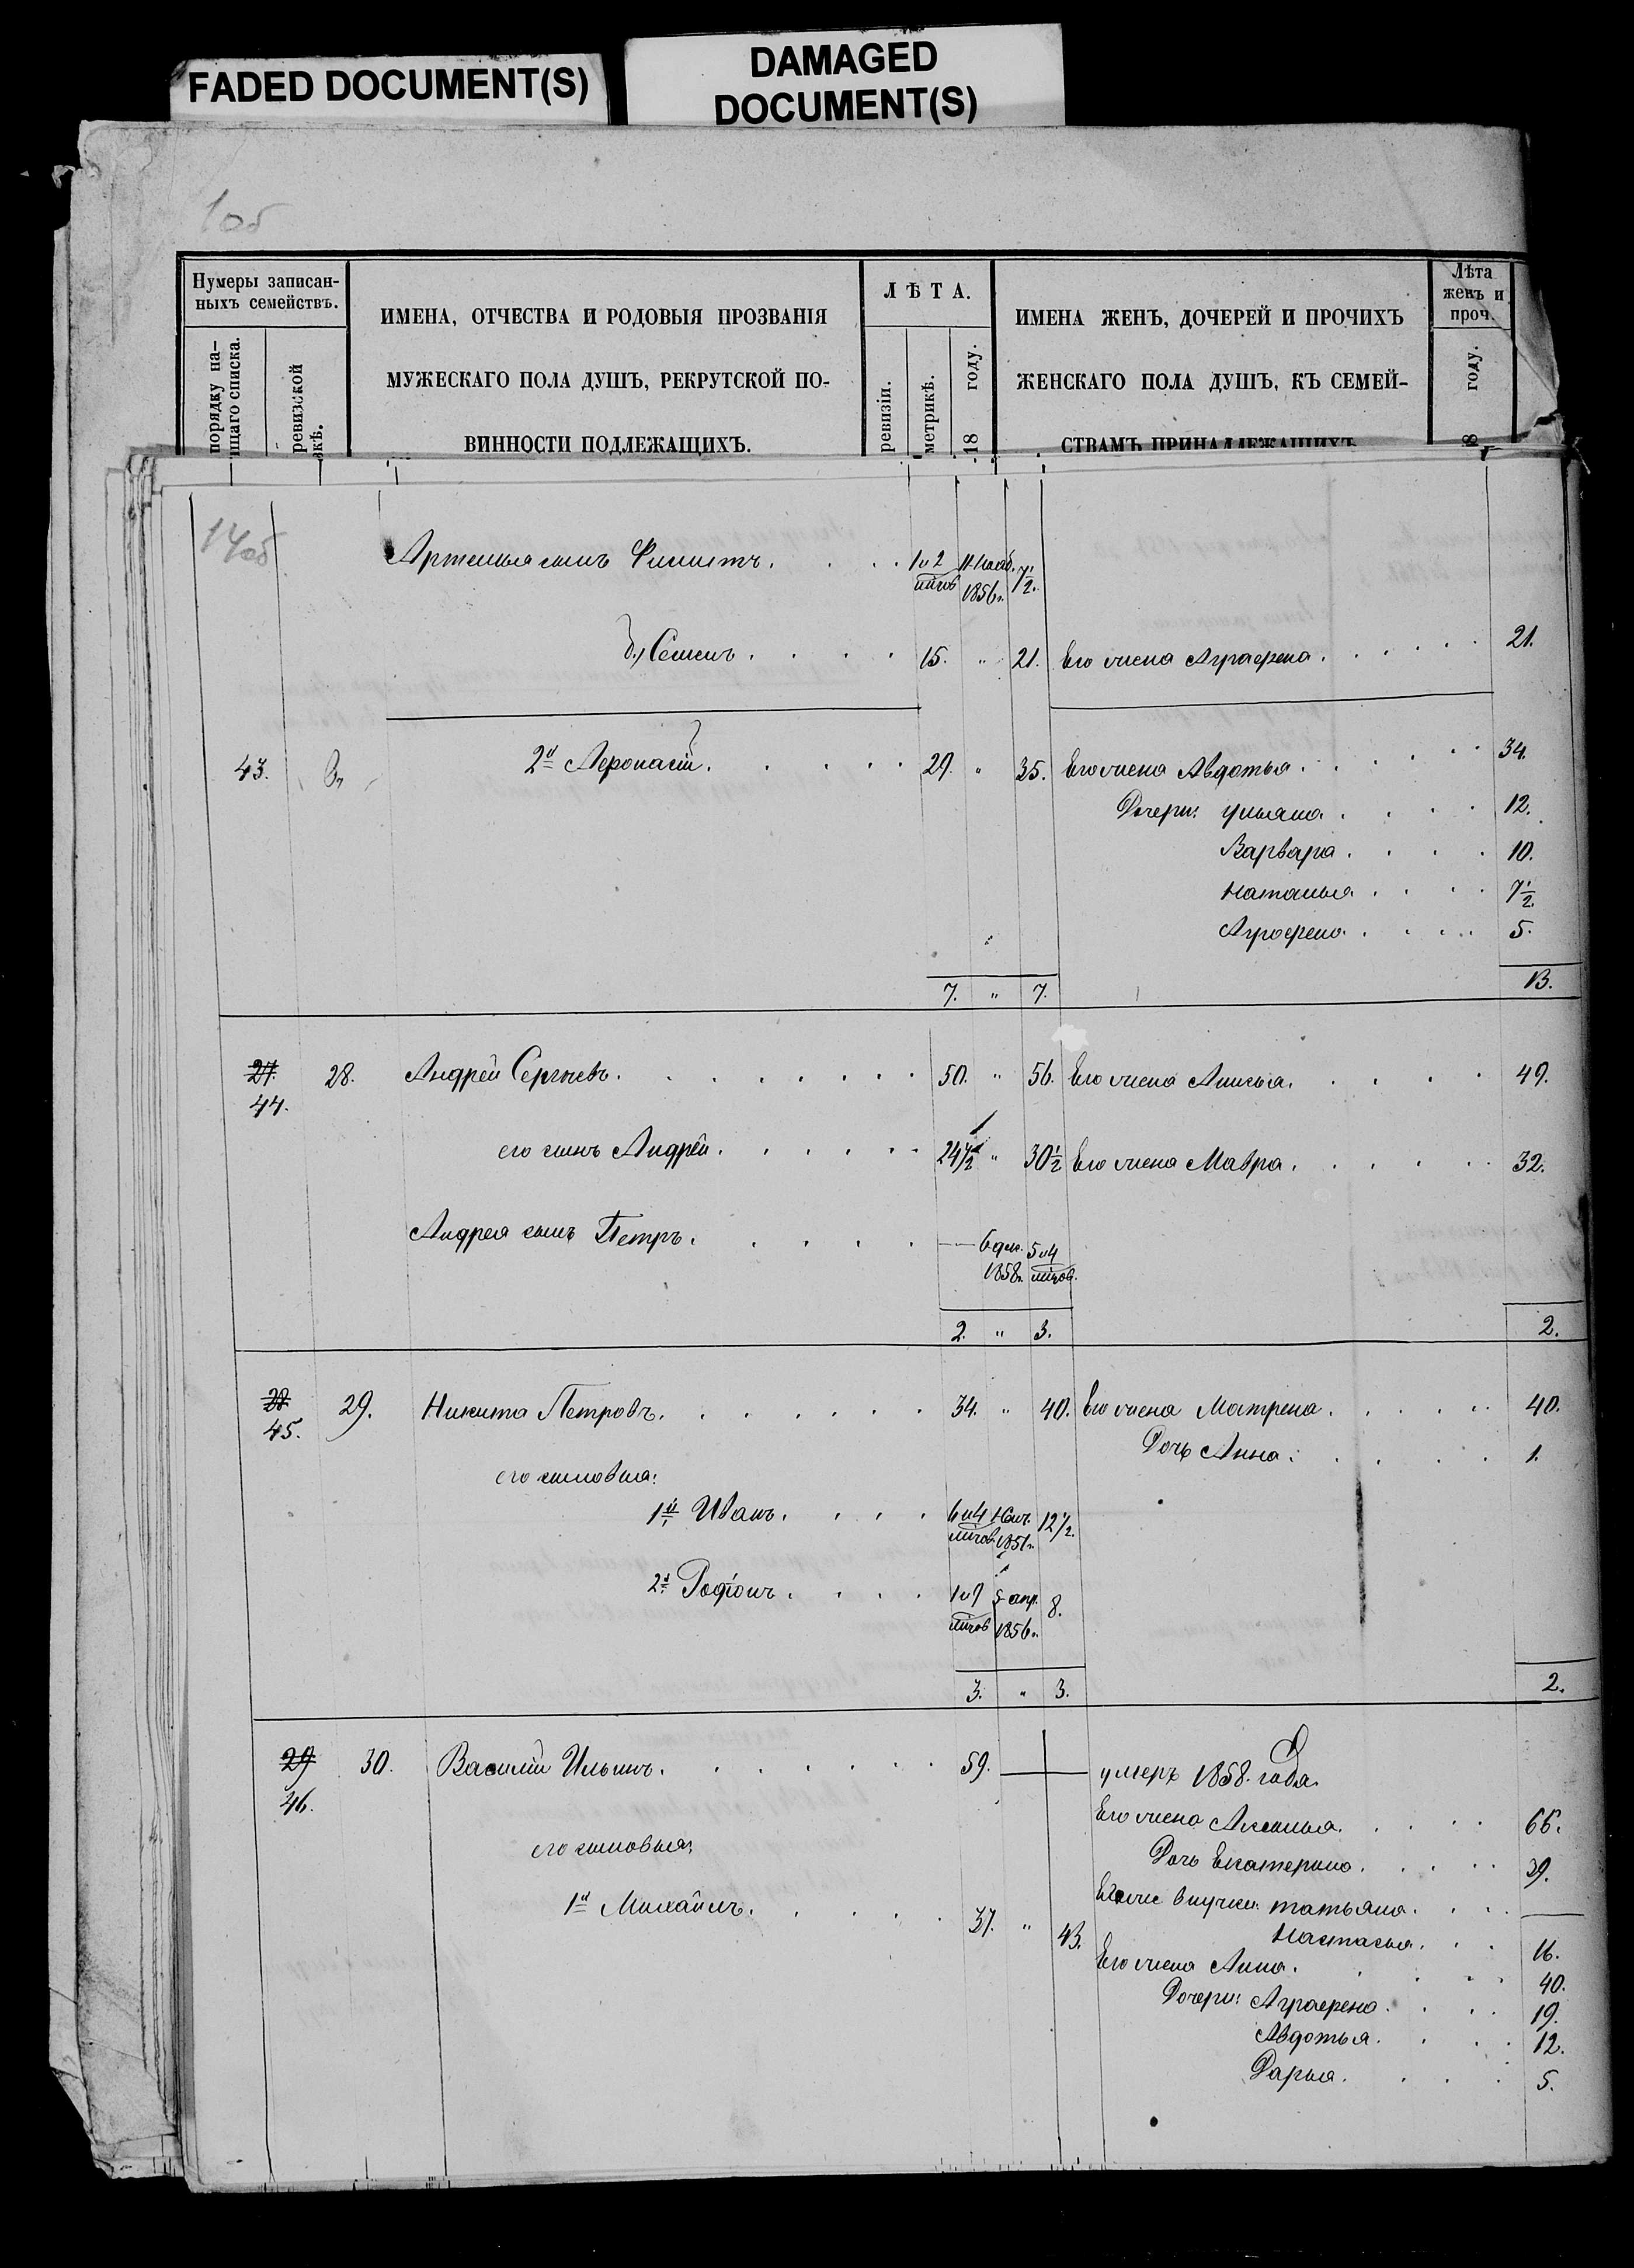 FADED DOCUMENT(S)
DAMAGED
DOCUMENT(S)
1об
Нумеры записан-
ныхъ семействъ.
порядку на-
щаго списка.
ревизской
зкѣ.
ИМЕНА, ОТЧЕСТВА И РОДОВЫЯ ПРОЗВАНІЯ
МУЖЕСКАГО ПОЛА ДУШЪ, РЕКРУТСКОЙ ПО-
ВИННОСТИ ПОДЛЕЖАЩИХЪ.
ЛѢТА.
ревизіи.
метрикѣ.
18 году.
ИМЕНА ЖЕНЪ, ДОЧЕРЕЙ И ПРОЧИХЪ
ЖЕНСКАГО ПОЛА ДУШЪ, КЪ СЕМЕЙ-
СТВАМЪ ПРИНАДЛЕЖАЩИХЪ
Лѣта
женъ и
проч.
8 году.
14об
Артемья сынъ . . . 1 и 2 1856г. 7 1/2.
Семенъ . . . . 15. " 21. Его жена Аграфена . . . . . 21.
43. 2й . . . . . 29. " 35. Его жена Авдотья . . . . 34.
Дочери: Ульяна . . . . 12.
Варвара . . . . 10.
Наталья . . . . 7 1/2.
Аграфена . . . . 5.
7. " 7. 13.
27. 28. Андрей Сергѣевъ . . . . . . . 50. " 56. Его жена Анисья . . . . . 49.
44.
его сынъ Андрей . . . . . . 24 1/2 " 30 1/2 Его жена Мавра . . . . . . 32.
Андрея сынъ Петръ . . . . . — 6 дек. 5 и 4
1858г. мѣсяц.
2. " 3. 2.
28. 29. Никита Петровъ . . . . . . . 34. " 40. Его жена Матрена . . . . . 40.
45. Дочь Анна . . . . . 1.
его сыновья:
1й Иванъ . . . . 6 и 4 12 1/2.
1851г.
2й Родіонъ . . . . 1 и 9 5 апр. 8.
1856г.
3. " 3. 2.
29 30. Василій Ильинъ . . . . . . . 59. — умеръ 1858. года.
46. Его жена Аксинья . . . . 66.
его сыновья: Дочь Екатерина . . . . 39.
внучки: Татьяна . . . —
1й Михаилъ . . . . . 37. " 43. Настасья . . . 16.
Его жена Анна . . . . 40.
Дочери: Аграфена . . . . 19.
Авдотья . . . . 12.
Дарья . . . . 5.